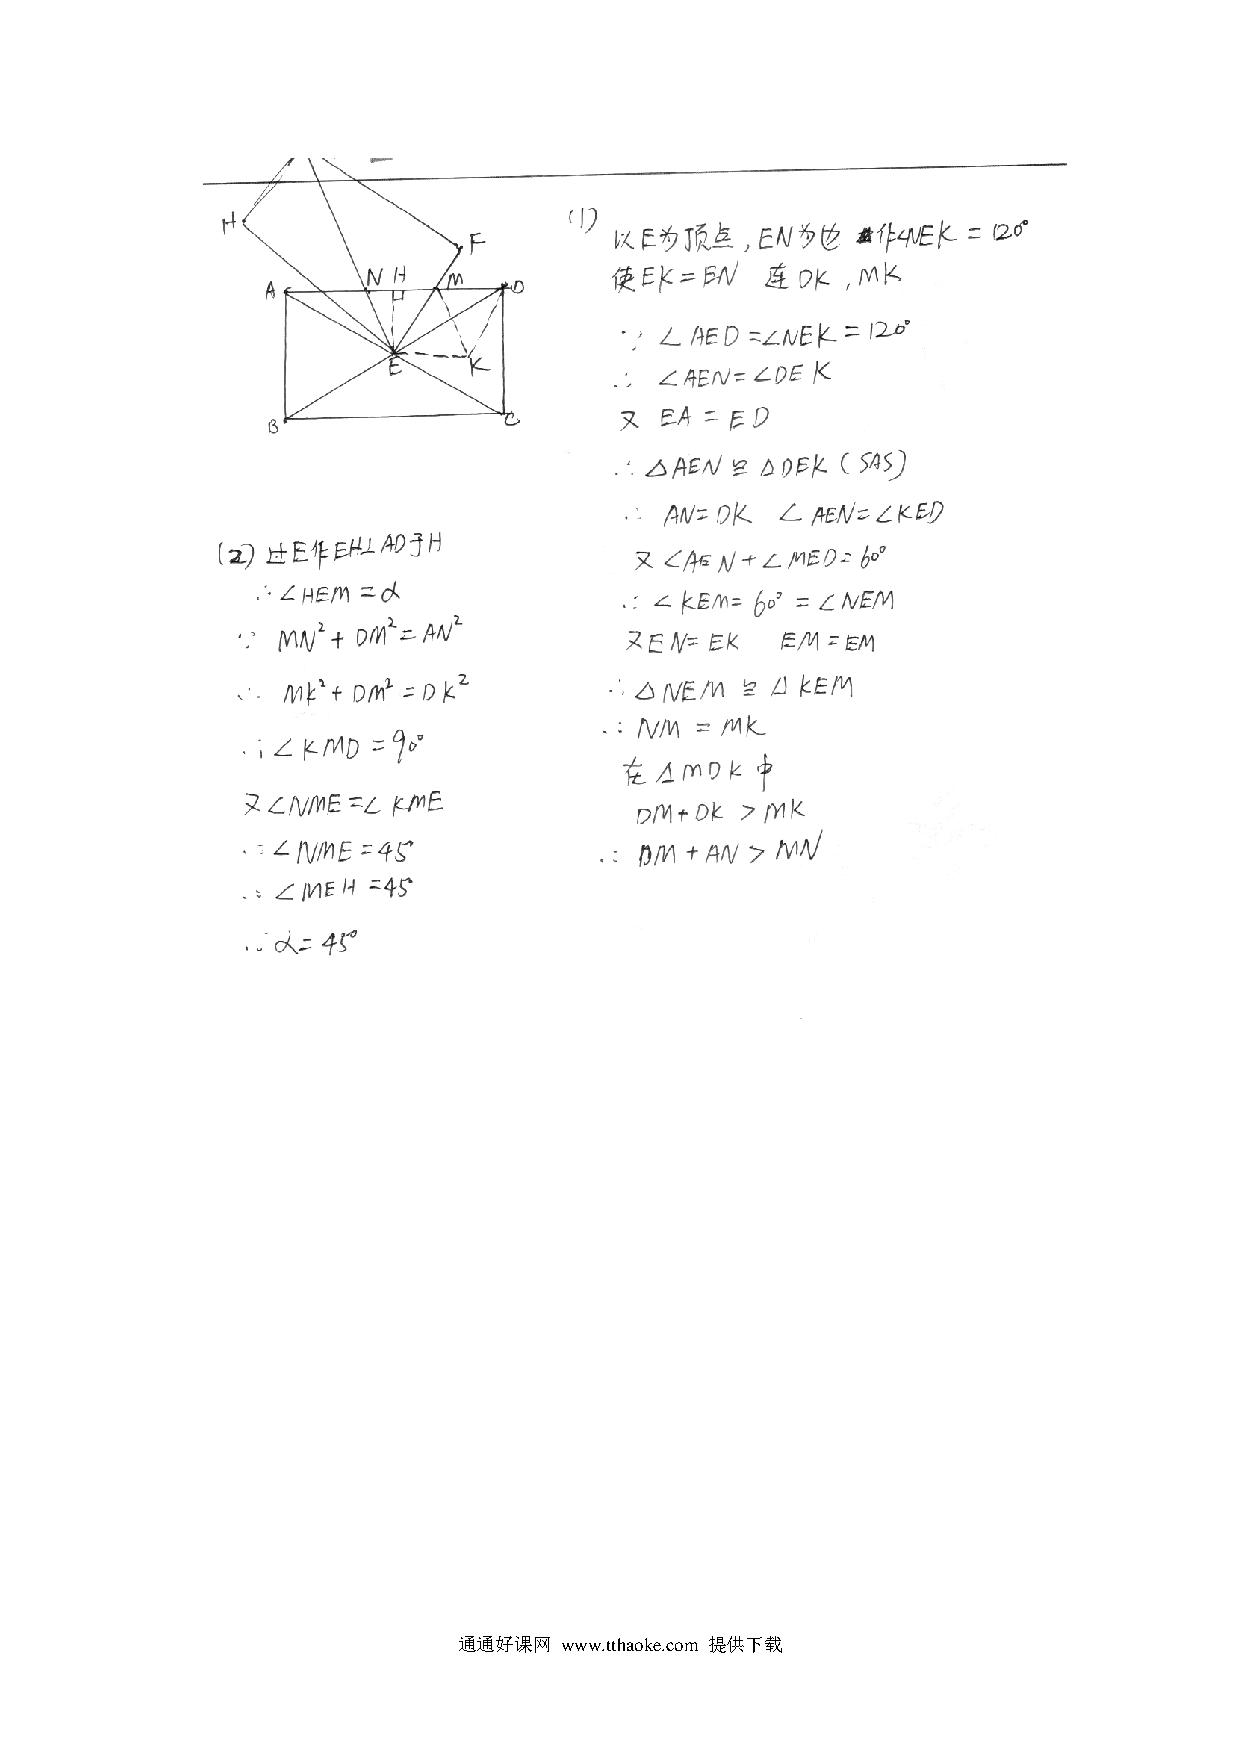 H
F
A
N
H
M
D
E
K
B
C
(1)
以E为顶点,EN为边 作∠NEK=120°
使EK=EN 连DK,MK
∵ ∠AED=∠NEK=120°
∴ ∠AEN=∠DEK
又 EA=ED
∴ △AEN≌△DEK(SAS)
∴ AN=DK ∠AEN=∠KED
又∠AEN+∠MED=60°
∴ ∠KEM=60°=∠NEM
又EN=EK EM=EM
∴ △NEM≌△KEM
∴ NM=MK
在△MDK中
DM+DK>MK
∴ DM+AN>MN
(2)过E作EH⊥AD于H
∴ ∠HEM=α
∵ MN²+DM²=AN²
∴ MK²+DM²=DK²
∴ ∠KMD=90°
又∠NME=∠KME
∴ ∠NME=45°
∴ ∠MEH=45°
∴ α=45°
通通好课网 www.tthaoke.com 提供下载